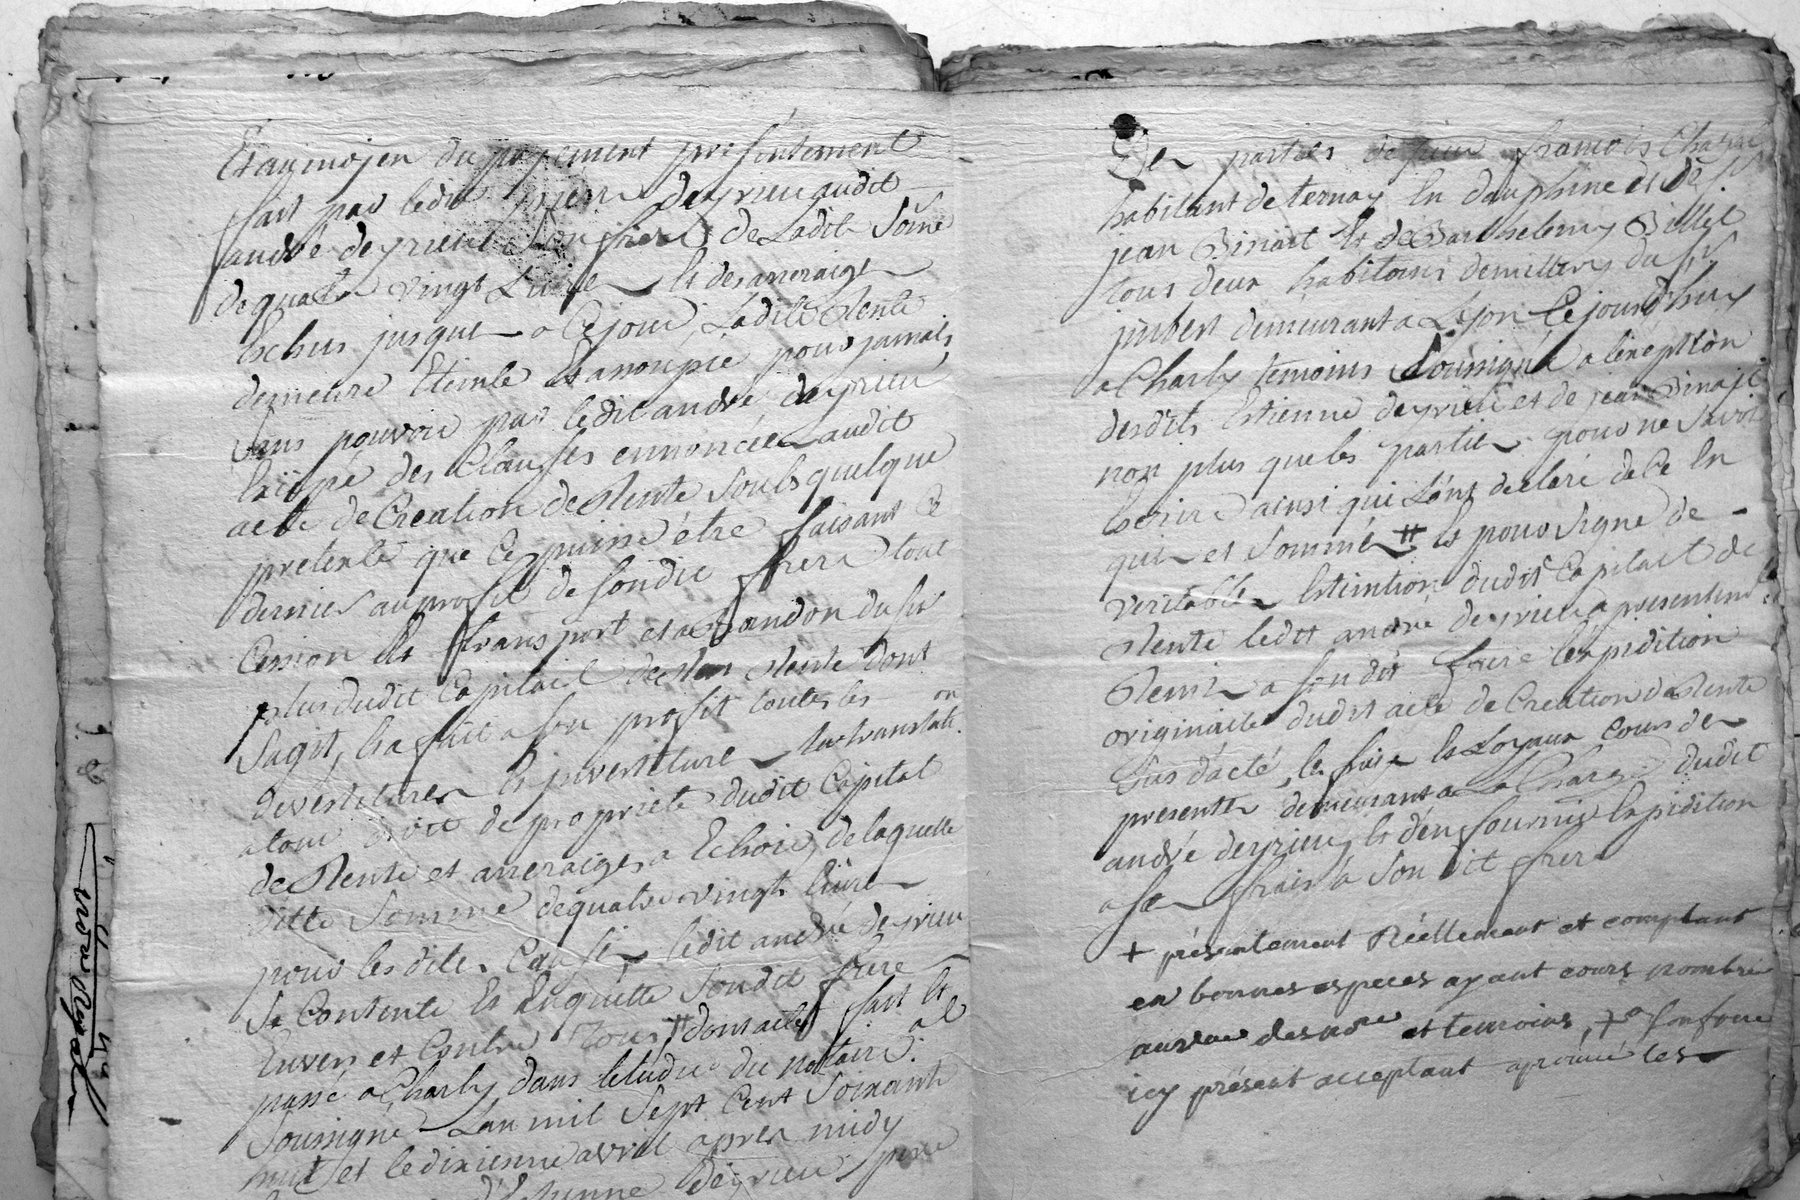 Et au moyen du payement presentement
fait par ledit pierre deyrieu audit
andré deyrieu Son frere de Ladit Some
de quatre vingt Livres Et des arreraiges
Echus jusques a Ce jour, Ladite Rente
demeure Eteinte Et assoupie pour jamais
Sans pouvoir par ledit andré deyrieu
des Clauses ennoncées audit
acte de Creation de Rente Soubs quelque
pretexte que Ce puisse étre faisant Ce
dernier au profit de Sondit frere tout
Cession Et transport et abandon du Sur
plus dudit Capital de Rente dont
Sagit, Et a fait a Son profit toutes les
devestitures Et investitures translation
a tout droit de proprieté dudit Capital
de Rente et arreraiges a Echoir, de laquelle
ditte Somme de quatre vingt livres
pour lesdites Causes ledit andré deyrieu
Se Contente Et Enquitte Sondit frere
Envers et Contre Tous, # dont acte fait Et
passé a Charly dans letude du notaire
Soussigné Lan mil Sept Cent Soixante
huit et le dixieme avril apres midy
d'Etienne deyrieu pere
Des parties de Sieur francois
habitant de ternay En dauphine et de Sr
jean Binait Et de Barthelemy Billet
tous deux habitans de millery du Sr
jmbert demeurant a Lyon Ce jourdhuy
a Charly temoins Soussigné a lexeption
desdits Estienne deyrieu et de jean Binait
non plus que les parties pour ne Savoir
Ecrire ainsi qui Lont declaré de Ce En
quis et Sommés # Et pour Signe de
veritable Extintion dudit Capital de
Rente ledit andré deyrieu a presentement
Remis a Sondit frere lexpedition
originaire dudit acte de Creation de Rente
Sus dacté, les frais Et Loyaux Cours de
presentes demeurant a La Charge dudit
andré deyrieu, Et den fournir Expidition
a Ses frais a Son dit frere
+ présentement Réellement et comptant
en bonnes especes ayant cours nombré
au vue des nore et temoins, + a Son frere
icy présent acceptant aprouvé les